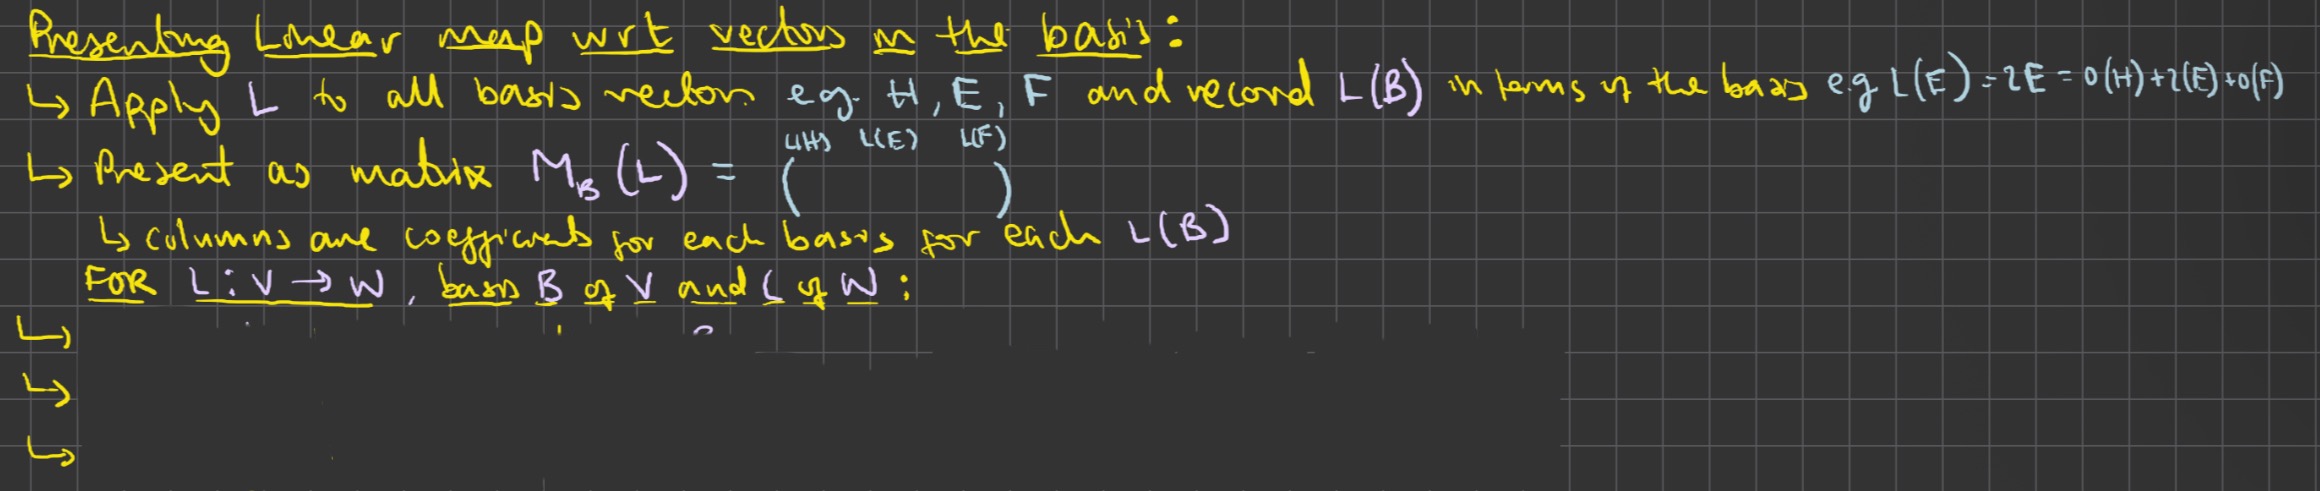 Presenting Linear map wrt vectors in the basis:
↳ Apply L to all basis vectors e.g. H, E, F and record L(B) in terms of the basis e.g L(E) = 2E = 0(H)+2(E)+0(F)
L(H) L(E) L(F)
↳ Present as matrix M_B(L) = ( )
↳ columns are coefficients for each basis for each L(B)
FOR L: V → W, basis B of V and C of W:
↳
↳
↳